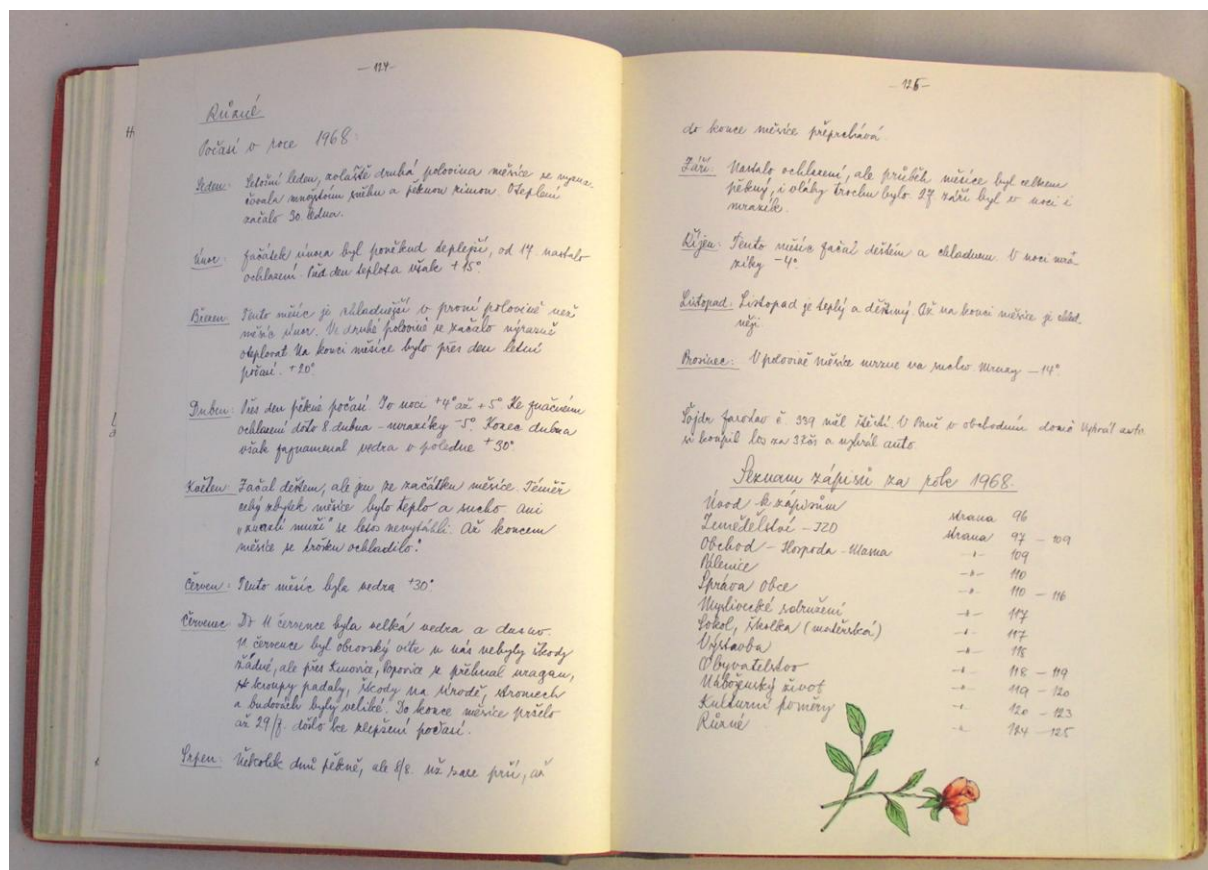 - 124 -
Různé
Počasí v roce 1968:
Leden: Letošní leden, zvláště druhá polovina měsíce se vyzna-
čovala množstvím sněhu a pěknou zimou. Oteplení
začalo 30 ledna.
Únor: Začátek února byl poněkud teplejší, od 17. nastalo
ochlazení. Přes den teplota však +15°
Březen: Tento měsíc je chladnější v první polovině než
měsíc únor. Ve druhé polovině se začalo výrazně
oteplovat. Na konci měsíce bylo přes den letní
počasí. +20°
Duben: Přes den pěkné počasí. Vo noci +4° až +5°. Ke značnému
ochlazení došlo 8. dubna - mrazíky -5°. Konec dubna
však zaznamenal vedra v poledne +30°
Květen: Začal deštem, ale jen ze začátku měsíce. Téměř
celý zbytek měsíce bylo teplo a sucho. Ani
„zmrzlí muži" se letos nevytáhli. Až koncem
měsíce se trošku ochladilo.
Červen: Tento měsíc byla vedra +30°
Červenec: Do 11 července byla velká vedra a dusno.
července byl obrovský u nás nebyly škody
žádné, ale přes Popovice se přehnal uragan,
kroupy padaly, škody na úrodě, stromech
a budovách byly veliké. Do konce měsíce pršelo
až 29/7. došlo ke zlepšení počasí.
Srpen: Několik dnů pěkně, ale 8/8. už zase prší, až
H
- 125 -
do konce měsíce přeprchává
Září: Nastalo ochlazení, ale průběh měsíce byl celkem
pěkný, i vláhy trochu bylo. 27 září byl v noci i
mrazík.
Říjen: Tento měsíc začal deštěm a chladnem. V noci mrá-
zíky -4°
Listopad: Listopad je teplý a deštivý. Až na konci měsíce je chlad-
něji
Prosinec: V polovině měsíce mrzne na sucho. Mrazy -14°.
Šojdr Jaroslav č. 339 měl štěstí. V Brně v obchodním domě Vyhrál auto.
si koupil los za 3 Kčs a vyhrál auto.
Seznam zápisů za rok 1968.
Úvod k zápisům strana 96
Zemědělství - JZD strana 97 - 109
Obchod - Hospoda - Masna -"- 109
Pálenice -"- 110
Správa obce -"- 110 - 116
Myslivecké sdružení -"- 117
Sokol, školka (mateřská) -"- 117
Výstavba -"- 118
Obyvatelstvo -"- 118 - 119
Náboženský život -"- 119 - 120
Kulturní poměry -"- 120 - 123
Různé -"- 124 - 125